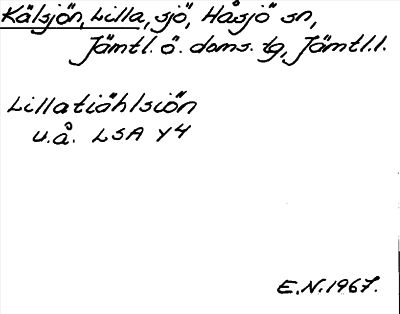 Kälsjön, Lilla, sjö, Håsjö sn,
Jämtl. ö. doms. tg, Jämtl.l.
Lillatiöhlsiön
u.å. LSA Y4
E.N. 1967.